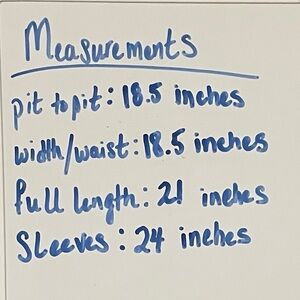 Measurements
pit to pit: 18.5 inches
width/waist: 18.5 inches
full length: 21 inches
Sleeves: 24 inches